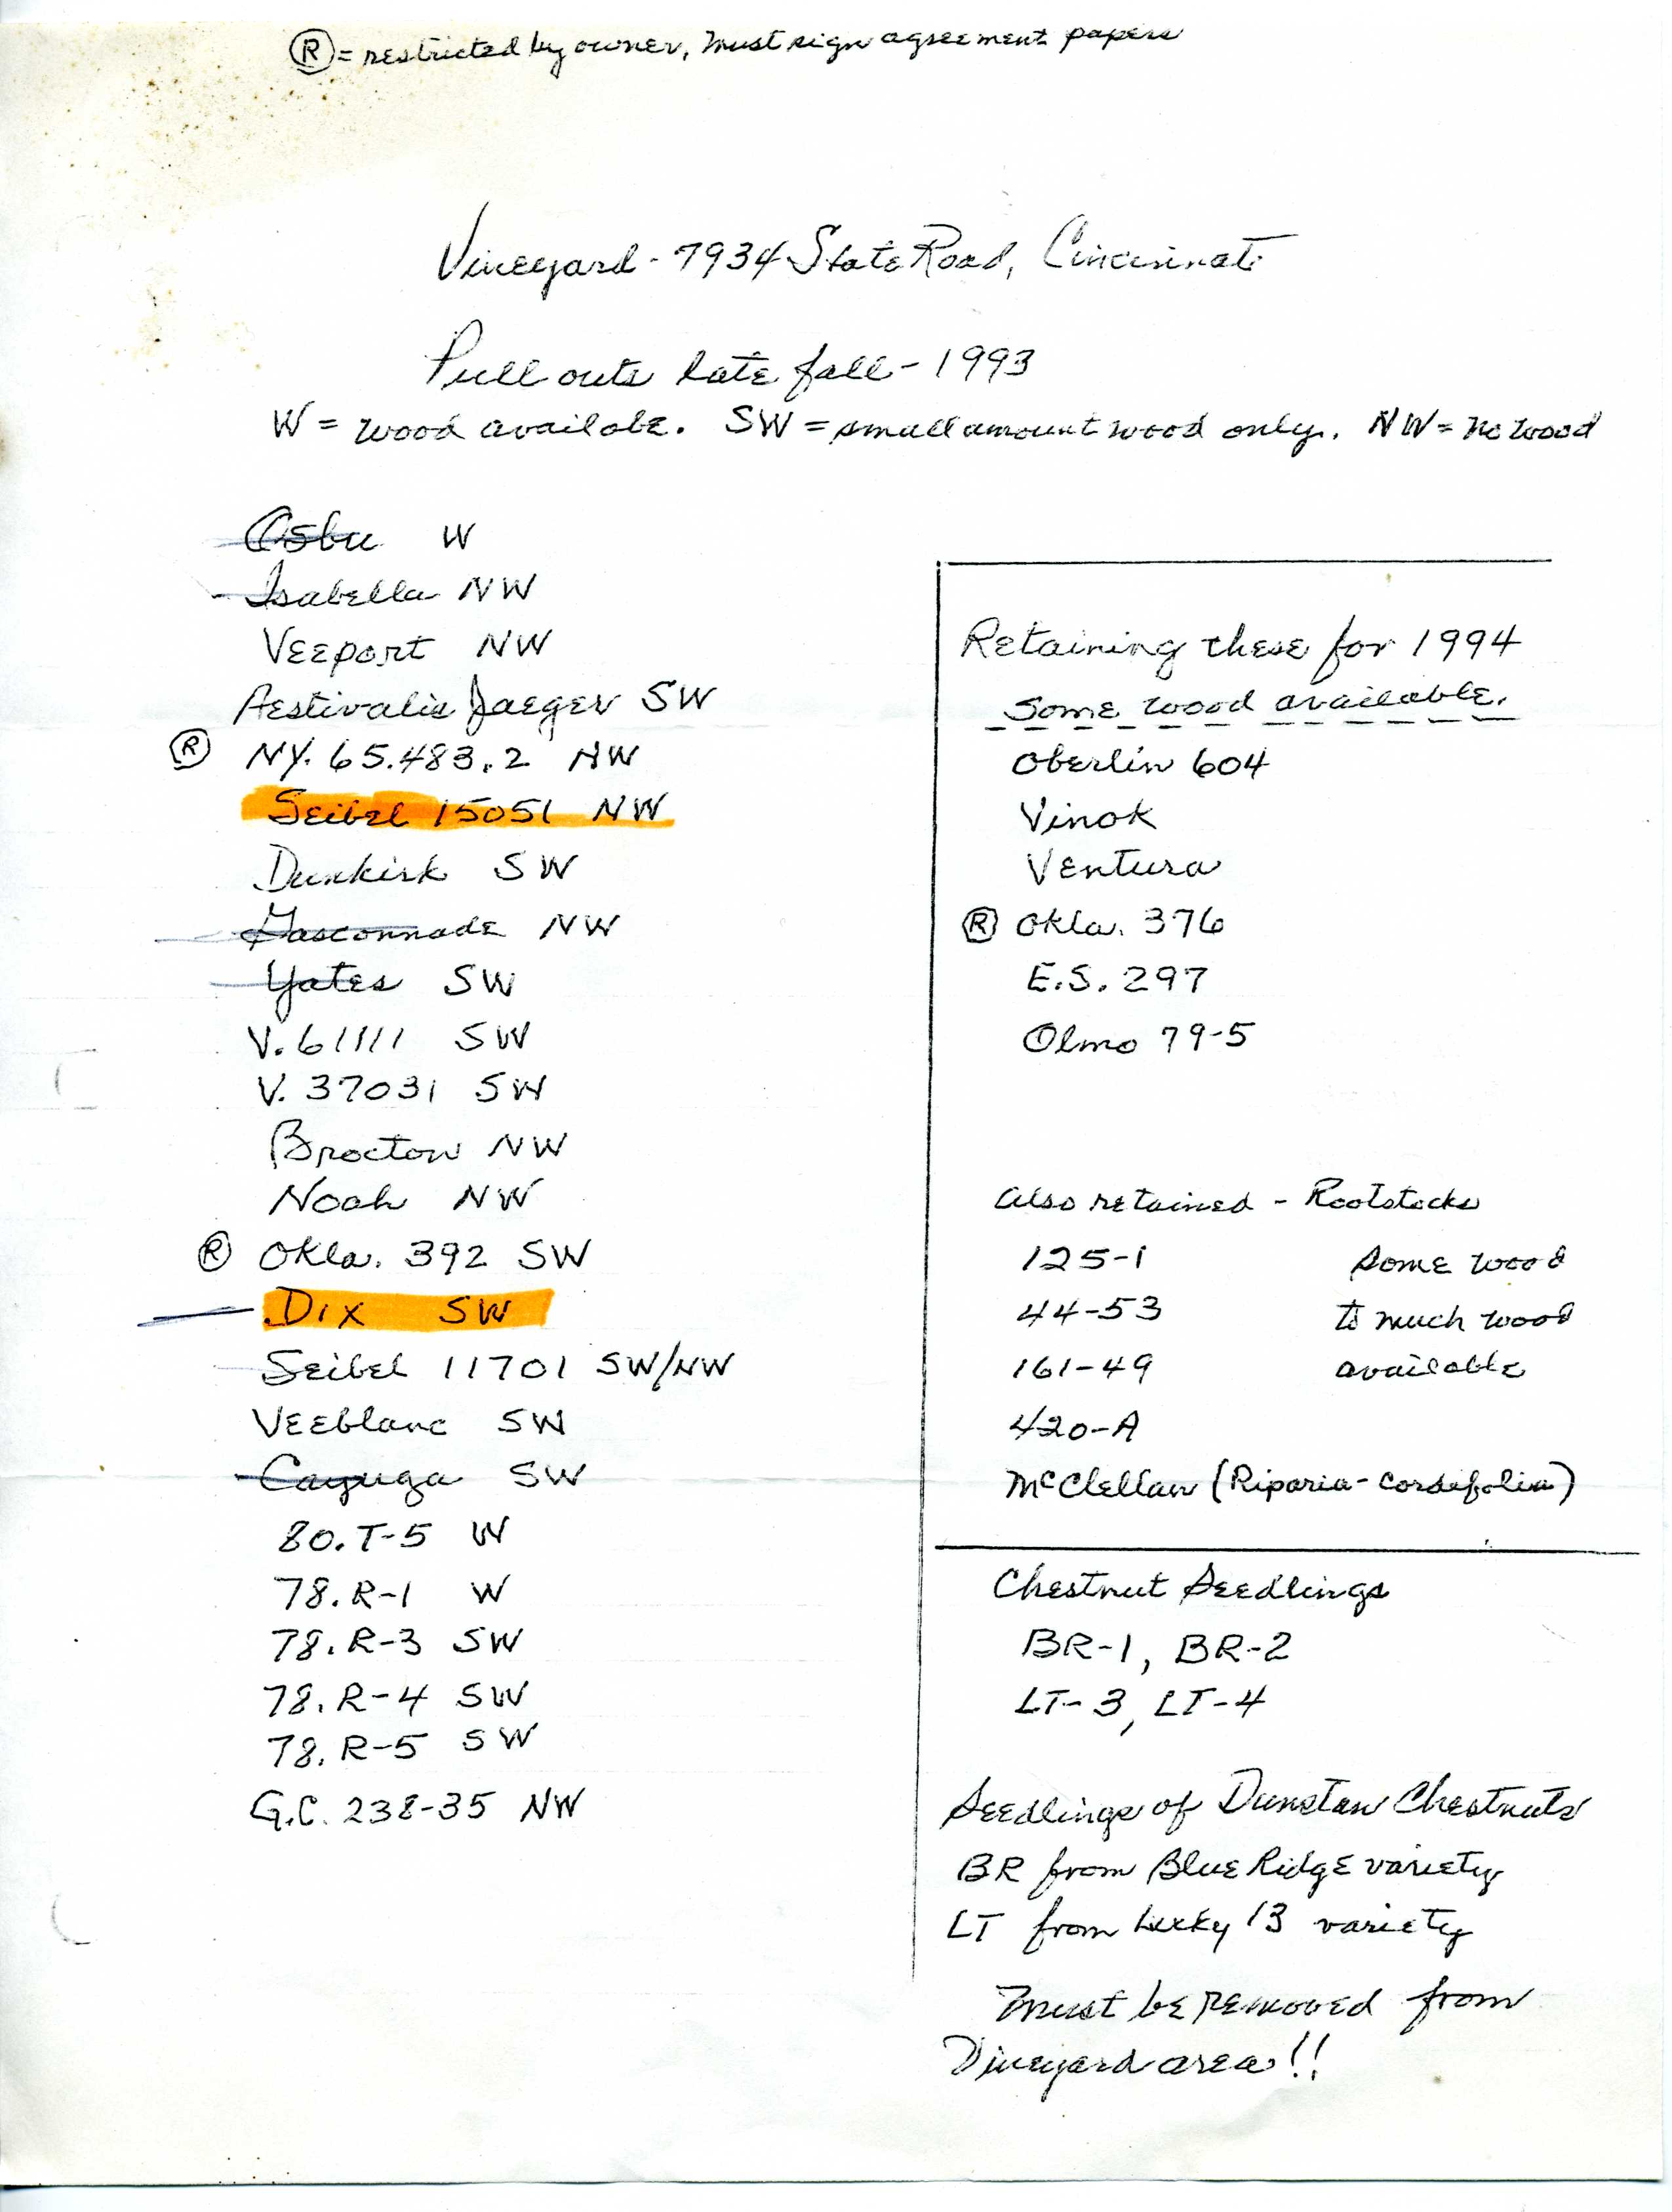 Ⓡ = restricted by owner, must sign agreement papers
Vineyard - 7934 State Road, Cincinnati
Pull outs late fall - 1993
W = wood availabe. SW = small amount wood only. NW = no wood
W
Isabella NW
Veeport NW
Aestivalis Jaeger SW
Ⓡ NY. 65.483.2 NW
Seibel 15051 NW
Dunkirk SW
Gasconnade NW
Yates SW
V. 61111 SW
V. 37031 SW
Brocton NW
Noah NW
Ⓡ Okla. 392 SW
Dix SW
Seibel 11701 SW/NW
Veeblanc SW
Cayuga SW
80.T-5 W
78.R-1 W
78.R-3 SW
78.R-4 SW
78.R-5 SW
G.C. 238-35 NW
Retaining these for 1994
Some wood available.
Oberlin 604
Vinok
Ventura
Ⓡ Okla. 376
E.S. 297
Olmo 79-5
Also retained - Rootstocks
125-1 Some wood
44-53 to much wood
161-49 available
420-A
McClellan (Riparia-cordifolia)
Chestnut Seedlings
BR-1, BR-2
LT-3, LT-4
Seedlings of Dunstan Chestnuts
BR from Blue Ridge variety
LT from Lucky 13 variety
Must be removed from
Vineyard area!!